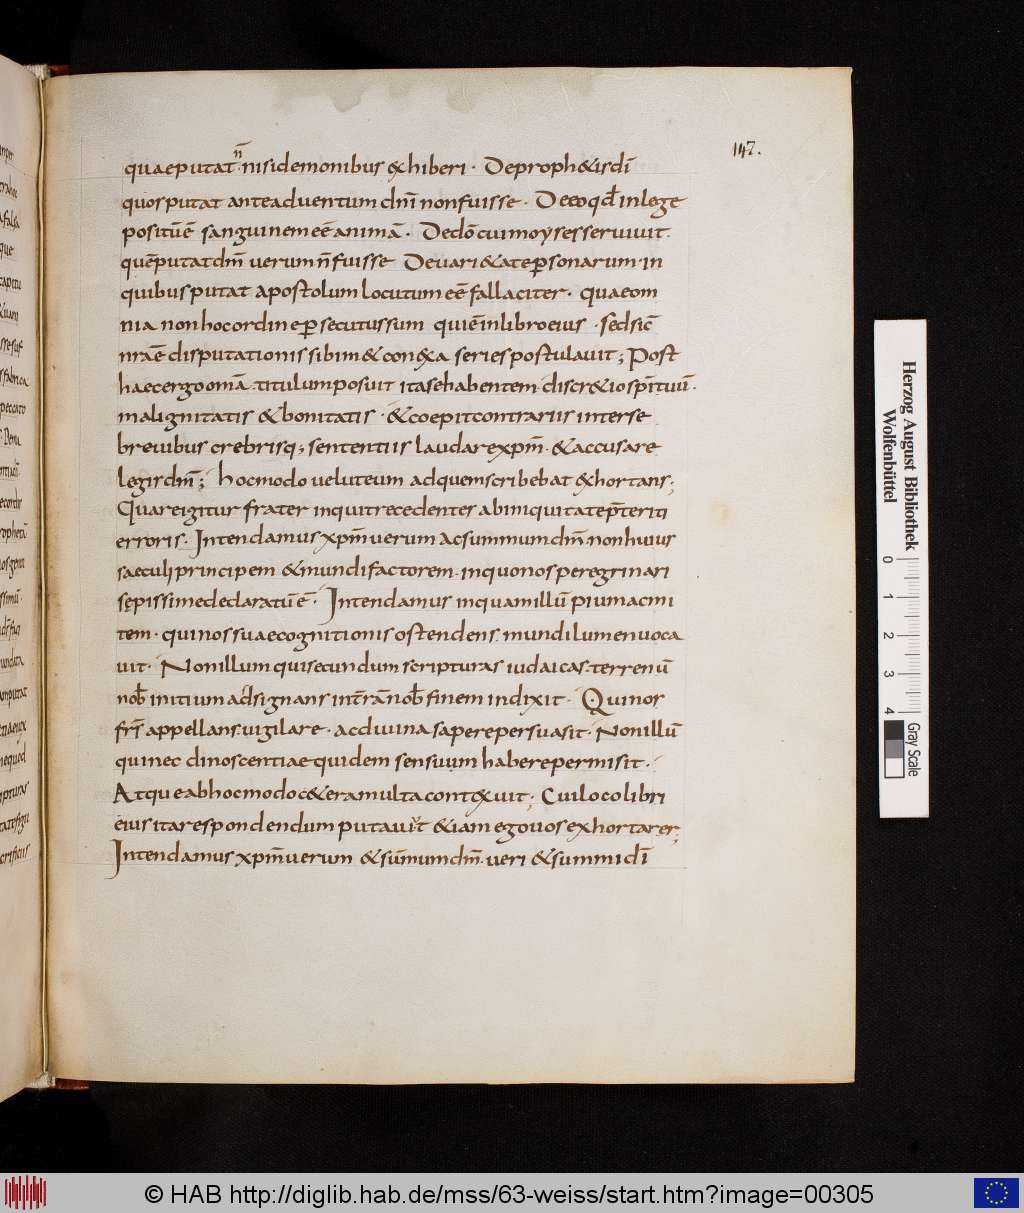 147.
quae putat n̄ nisi demonibus exhiberi · De proph&is dī
quos putat ante adventum dn̄i non fuisse · De eo qd̄ in lege
positū ē sanguinem eē animā · De dō cui moyses servivit ·
quē putat dm̄ verum n̄ fuisse De vari&ate p̲sonarum · in
quibus putat apostolum locutum eē fallaciter · quae om
nia non hoc ordine p̲secutus sum qui ē in libro eius · sed sic̄
nr̄ae disputationis sibim& conexa series postulavit ; Post
haec ergo omā · titulum posuit ita se habentem · discr&io spīrituū ·
malignitatis & bonitatis · & coepit contrariis inter se
brevibus crebrisq; sententiis laudare xpm̄ · & accusare
legis dm̄ ; hoc modo velut eum ad quem scribebat exhortans ;
Quare igitur frater inquit recedentes ab iniquitate p̄teriti
erroris · Intendamus xpm̄ verum ac summum dm̄ non huius
saeculi principem & mundi factorem · in quo nos peregrinari
sępissime declaratū ē · Intendamus inquam illū pium ac mi
tem · qui nos suae cognitionis ostendens mundi lumen voca
vit · Non illum qui secundum scripturas iudaicas terrenū
nob̄ initium adsignans intrān nob̄ finem indixit · Qui nos
frs̄ appellans vigilare · ac divina sapere persuasit · Non illū
qui nec dinoscentiae quidem sensuum habere permisit ·
Atque ab hoc modo c&era multa contexuit ; Cui loco libri
eius ita respondendum putavit & iam ego vos exhortarer ;
Intendamus xpm̄ verum & sūmum dm̄ · veri & summi dī
Herzog August Bibliothek
Wolfenbüttel
0 1 2 3 4
Gray Scale
© HAB http://diglib.hab.de/mss/63-weiss/start.htm?image=00305